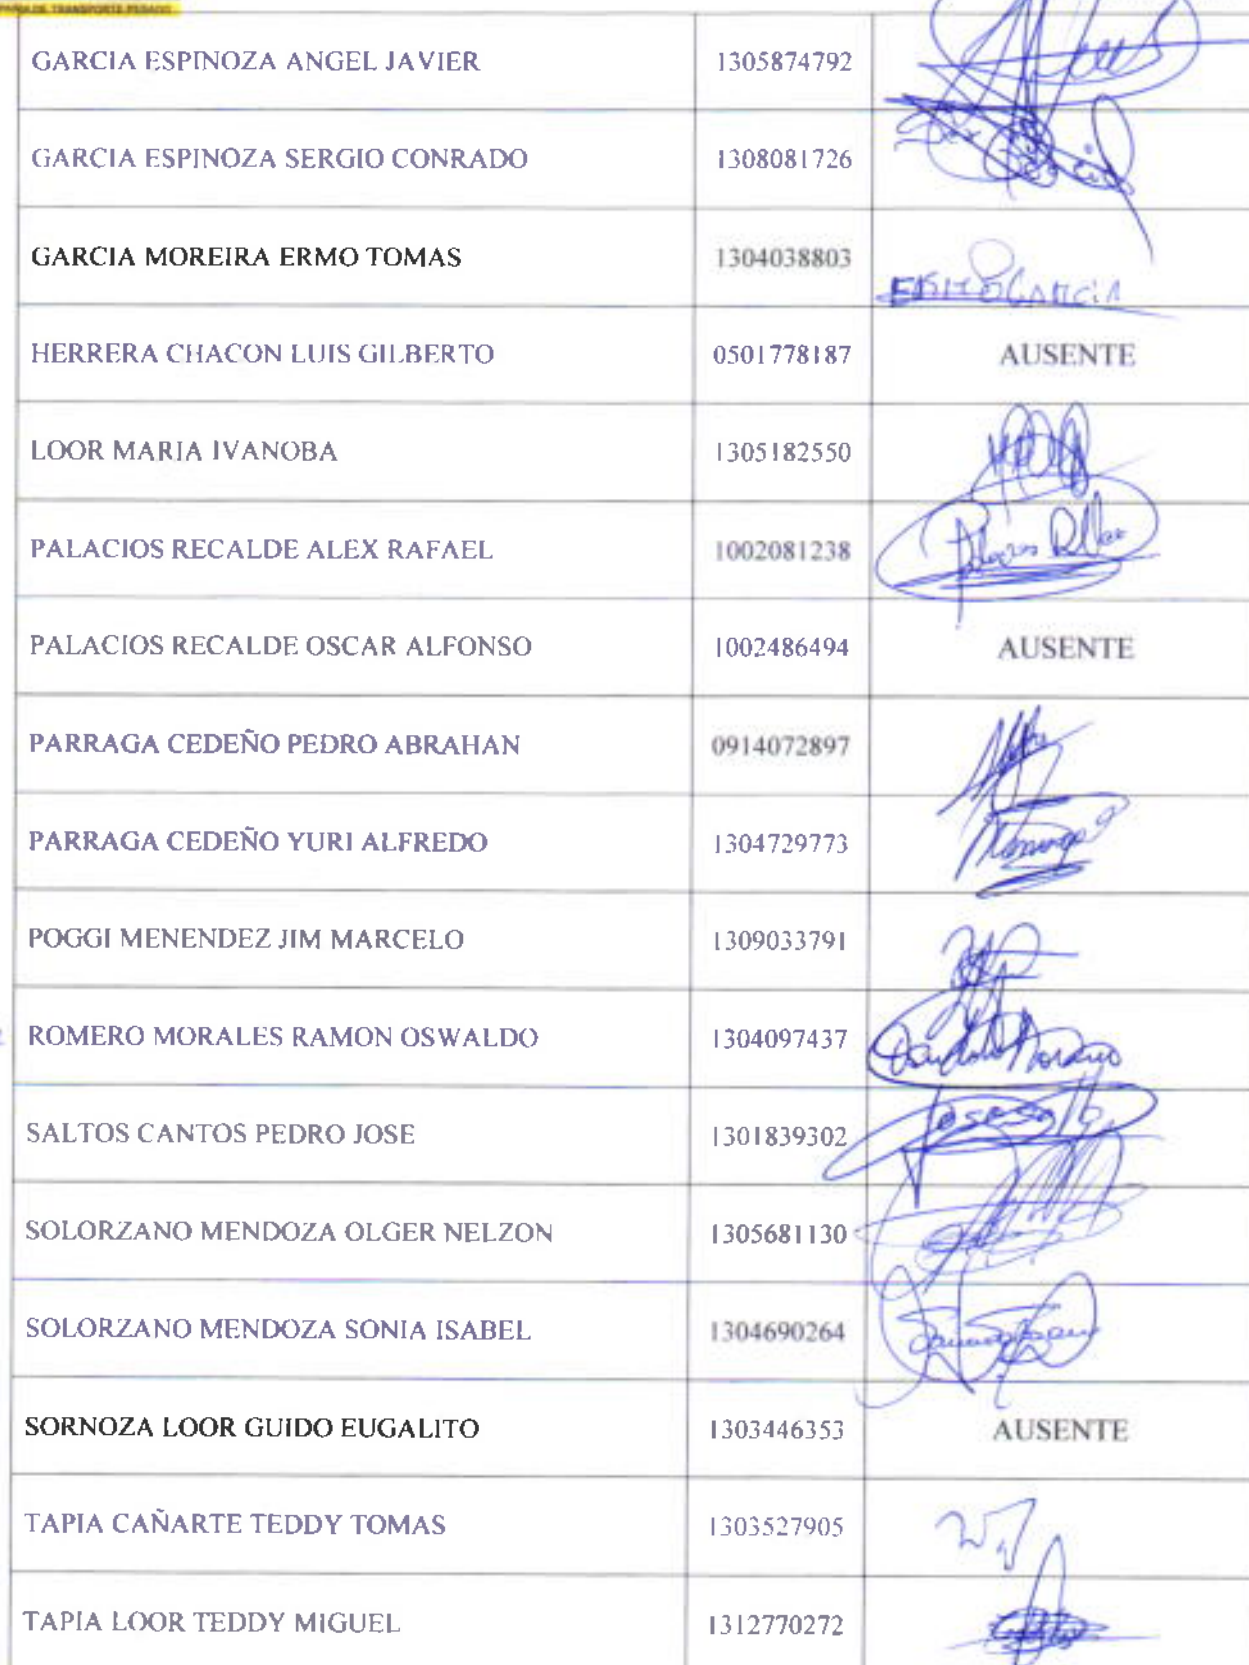 DE TRANSPORTE PESADO
GARCIA ESPINOZA ANGEL JAVIER 1305874792
GARCIA ESPINOZA SERGIO CONRADO 1308081726
GARCIA MOREIRA ERMO TOMAS 1304038803 ERMO GARCIA
HERRERA CHACON LUIS GILBERTO 0501778187 AUSENTE
LOOR MARIA IVANOBA 1305182550
PALACIOS RECALDE ALEX RAFAEL 1002081238
PALACIOS RECALDE OSCAR ALFONSO 1002486494 AUSENTE
PARRAGA CEDEÑO PEDRO ABRAHAN 0914072897
PARRAGA CEDEÑO YURI ALFREDO 1304729773
POGGI MENENDEZ JIM MARCELO 1309033791
ROMERO MORALES RAMON OSWALDO 1304097437
SALTOS CANTOS PEDRO JOSE 1301839302
SOLORZANO MENDOZA OLGER NELZON 1305681130
SOLORZANO MENDOZA SONIA ISABEL 1304690264
SORNOZA LOOR GUIDO EUGALITO 1303446353 AUSENTE
TAPIA CAÑARTE TEDDY TOMAS 1303527905
TAPIA LOOR TEDDY MIGUEL 1312770272